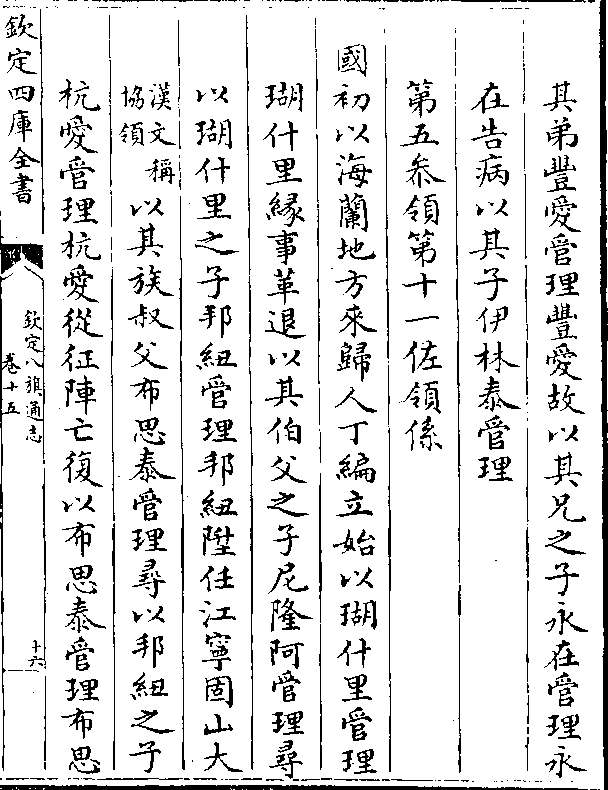 其弟豐愛管理豐愛故以其兄之子永在管理永
在告病以其子伊林泰管理
第五叅領第十一佐領係
國初以海蘭地方來歸人丁編立始以瑚什里管理
瑚什里緣事革退以其伯父之子尼隆阿管理尋
以瑚什里之子邦紐管理邦紐陞任江寧固山大
漢文稱
協領
以其族叔父布思泰管理尋以邦紐之子
杭愛管理杭愛從征陣亡復以布思泰管理布思
欽定四庫全書
欽定八旗通志
卷十五
十六